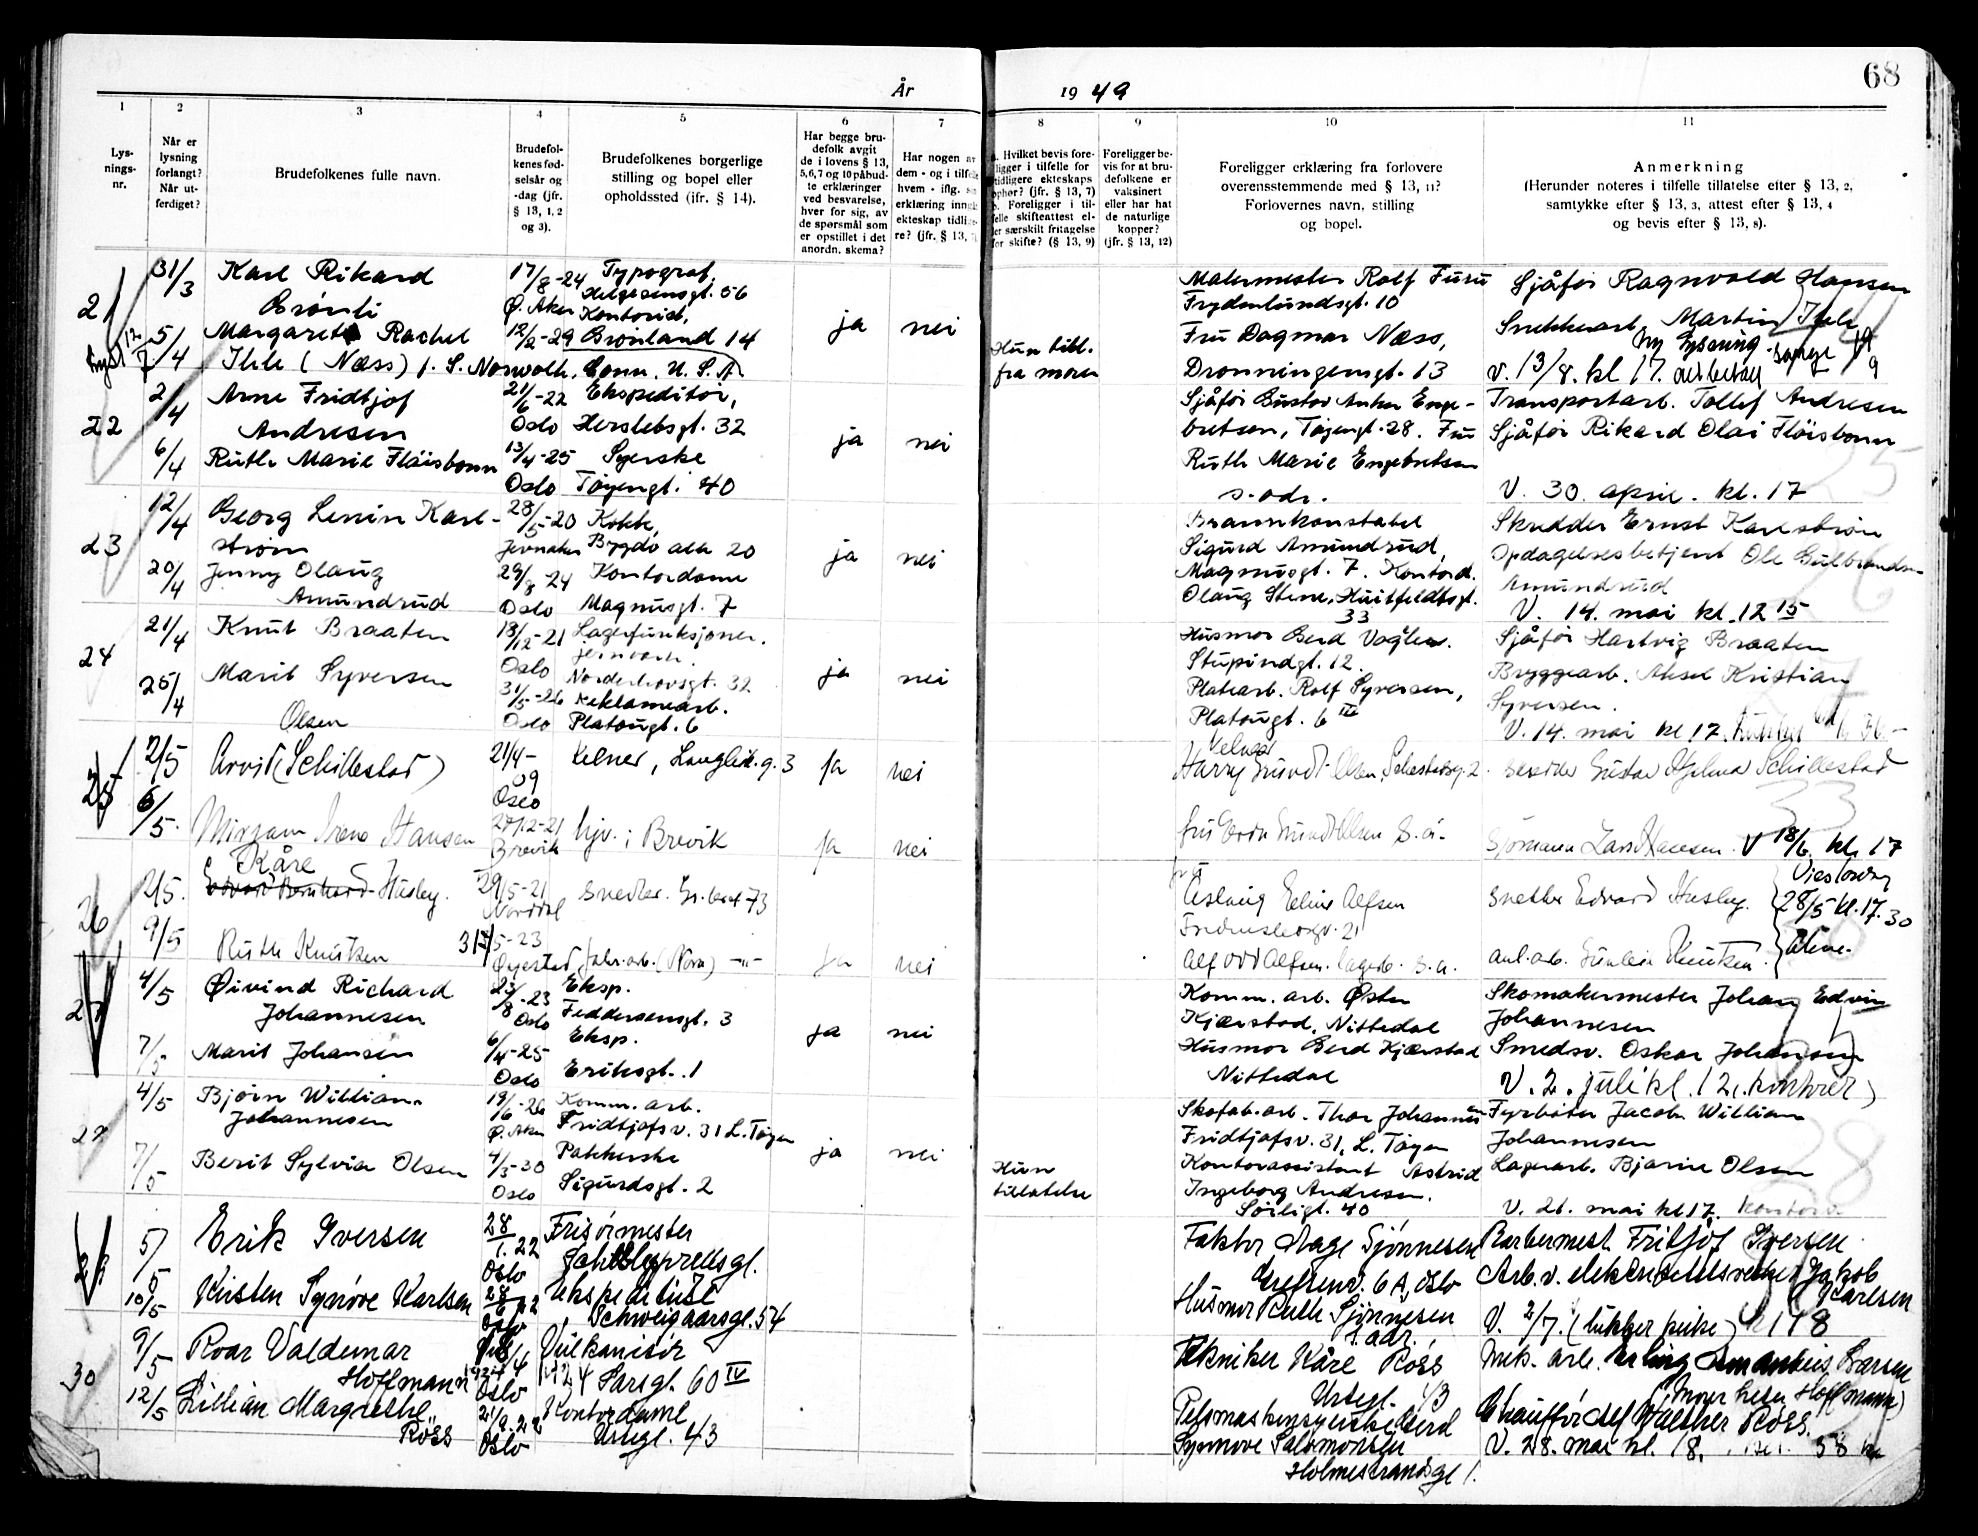 68
År 1949
1 2 3 4 5 6 7 8 9 10 11
Lys-
nings-
nr.
Når er
lysning
forlangt?
Når ut-
ferdiget?
Brudefolkenes fulle navn.
Brudefol-
kenes fød-
selsår og
-dag (jfr.
§ 13, 1, 2
og 3).
Brudefolkenes borgerlige
stilling og bopel eller
opholdssted (ifr. § 14).
Har begge bru-
defolk avgit
de i lovens § 13,
5,6,7 og 10 påbud-
te erklæringer
ved besvarelse,
hver for sig, av
de spørsmål som
er opstillet i det
anordn. skema?
Har nogen av
dem - og i tilfelle
hvem - iflg.
erklæring inngått
ekteskap tidlige-
re? (jfr. § 13,
Hvilket bevis fore-
ligger i tilfelle for
tidligere ekteskaps
ophør? (jfr. § 13, 7)
b. Foreligger i til-
felle skifteattest el-
ler særskilt fritagelse
for skifte? (§ 13, 9)
Foreligger be-
vis for at bru-
defolkene er
vaksinert
eller har hat
de naturlige
kopper?
(jfr. § 13, 12)
Foreligger erklæring fra forlovere
overensstemmende med § 13, 11?
Forlovernes navn, stilling
og bopel.
Anmerkning
(Herunder noteres i tilfelle tillatelse efter § 13, 2,
samtykke efter § 13, 3, attest efter § 13, 4
og bevis efter § 13, 8).
21
31/3
5/4
Karl Rikard
Brønli
Margarete Rachel
Ihle (Næss) f. S. Norwalk, Conn. U.S.A.
17/8-24
Ø. Aker
12/2-29
Typograf,
Helgesensgt. 56
Kontorist,
Grønland 14
ja
nei
Hun till.
fra moren
Malermester Rolf Furu
Frydenlundsgt. 10
Fru Dagmar Næss,
Dronningensgt. 13
Sjåfør Ragnvald Hansen
Snekkerarb. Martin Ihle
Ny lysning
v. 13/8. kl 17.
22
2/4
6/4
Arne Fridtjof
Andresen
Ruth Marie Fløisbonn
21/6-22
Oslo
13/4-25
Oslo
Ekspeditør,
Herslebsgt. 32
Syerske
Tøyengt. 40
ja
nei
Sjåfør Gustav Anker Enge-
bretsen, Tøyengt. 28. Fru
Ruth Marie Engebretsen
s. adr.
Transportarb. Tollef Andresen
Sjåfør Rikard Olai Fløisbonn
V. 30. april. kl. 17
25
23
12/4
20/4
Georg Lenin Karl-
strøm
Jenny Olaug
Amundrud
28/5-20
Jevnaker
29/8-24
Oslo
Kokk,
Bygdø alle 20
Kontordame
Magnusgt. 7
ja
nei
Brannkonstabel
Sigurd Amundrud,
Magnusgt. 7. Kontord.
Olaug Stene, Huitfeldtsgt.
33
Skredder Ernst Karlstrøm
Opdagelsesbetjent Ole Gulbrands.
Amundrud
V. 14. mai kl. 12 15
26
24
21/4
25/4
Knut Braaten
Marit Syversen
Olsen
13/12-21
Oslo
31/5-26
Oslo
Lagerfunksjonær.
Jernvare.
Norderhovsgt. 32
Reklamearb.
Platougt. 6
ja
nei
Husmor Gerd Vagler.
Stupindgt. 12.
Platearb. Rolf Syversen,
Platougt. 6 IV
Sjåfør Hartvig Braaten
Bryggearb. Aksel Kristian
Syversen.
V. 14. mai kl. 17.
25
2/5
6/5.
Arvid (Schillestad)
Mirjam Irene Hansen
21/4-
09
Oslo
27/12-21
Brevik
Kelner, Langlik. g. 3
hjv. i Brevik
ja
nei
ja
nei
Kelner
Harry Grundt Olsen
Gustav Hjelmar Schillestad
33
Sjømann Lars Hansen. V 18/6. kl. 17
26
2/5.
9/5
Kåre
Edvard Bernhard Husby.
Ruth Knutsen
29/5-21
Norddal
31/5-23
Øyestad
73
Fabr. arb. (Nora) -"-
ja
nei
Fru
Aslaug Eline Alfsen
Fredensborgv. 21
Alf Odd Alfsen. lagerb. s. a.
Snekker Edvard Husby.
Vies lørdag
28/5 kl. 17.30
alene.
anl. arb. Gunleiv Knutsen.
27
4/5
7/5
Øivind Richard
Johannesen
Marit Johansen
23/8-23
Oslo
6/4-25
Oslo
Eksp.
Feddersensgt. 3
Eksp.
Eriksgt. 1
ja
nei
Komm. arb. Østen
Kjærstad, Nittedal
Husmor Gerd Kjærstad
Nittedal
Skomakermester Johan Edvin
Johannesen
Smedsv. Oskar Johansen
V. 2. juli kl. 12. kontoret)
28
4/5
7/5
Bjørn William
Johannesen
Berit Sylvia Olsen
19/6-26
Ø. Aker
4/3-30
Oslo
Komm. arb.
Fridtjofsv. 31 L. Tøyen
Pakkerske
Sigurdsgt. 2
ja
nei
Hun
tillatelse
Skofab. arb. Thor Johannesen
Fridtjofsv. 31, L. Tøyen
Kontorassistent Astrid
Ingeborg Andresen.
Sørligt. 40
Fyrbøter Jacob William
Johannesen
Lagerarb. Bjarne Olsen
V. 21. mai kl 17. kontoret
28
29
5/5
10/5
Erik Iversen
Kirsten Synøve Karlsen
28/1. 22
Oslo
28/6 22
Oslo
Frisørmester
Ekspeditrise
Schweigaardsgt. 54
Faktor Aage Sjønnesen
Grefsenv. 6 A, Oslo
Husmor Ruth Sjønnesen
s. adr.
Barbermest. Fritjof Iversen
Arb. v. elektrisitetsverket Jakob
Karlsen
V. 2/7. (lukket kirke) kl 18
30
9/5
12/5
Roar Valdemar
Hoffmann
Lillian Margrethe
Röss
Oslo
21/9. 22
Oslo
Vulkanisør
Sarsgt. 60 IV
Kontordame
Urtegt. 43
Tekniker Kåre Röss
Urtegt. 43
Pelsmaskinsyerske Gerd
Synnøve Salomonsen
Holmestrandsgt 1.
Mek. arb. Erling Amandus Larsen
(Mor heter Hoffmann)
Chauffør Alf Walther Röss.
V. 28. mai kl. 18.